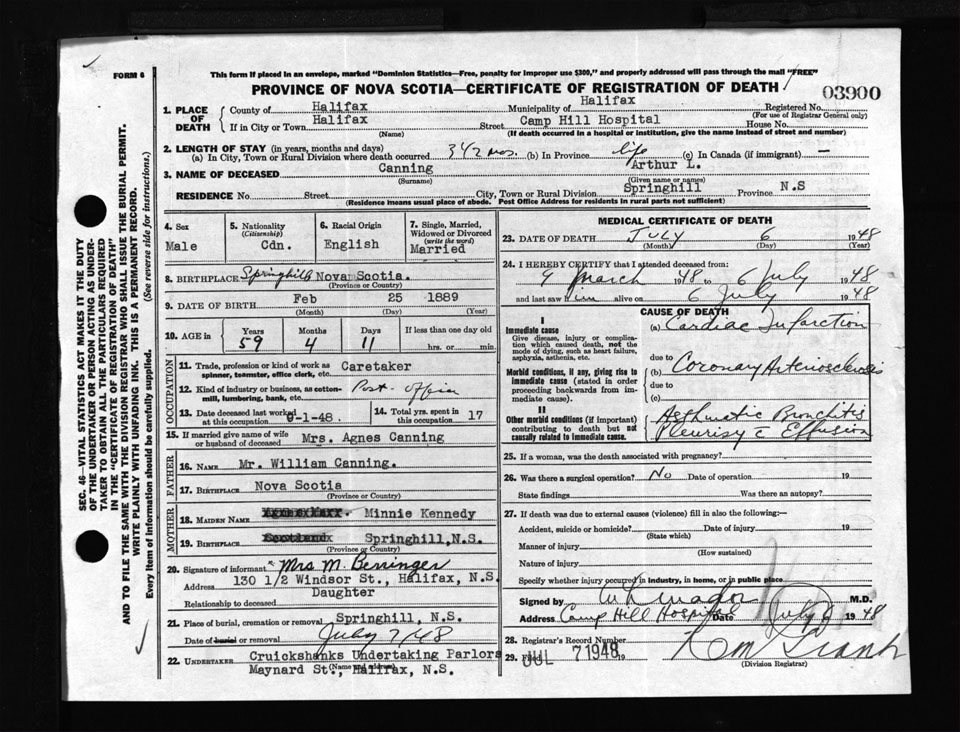 FORM 6
This form if placed in an envelope, marked "Dominion Statistics—Free, penalty for improper use $300," and properly addressed will pass through the mail "FREE"
PROVINCE OF NOVA SCOTIA—CERTIFICATE OF REGISTRATION OF DEATH
03900
1. PLACE OF DEATH
County of Halifax Municipality of Halifax Registered No.
(For use of Registrar General only)
If in City or Town Halifax Street Camp Hill Hospital House No.
(Name) (If death occurred in a hospital or institution, give the name instead of street and number)
2. LENGTH OF STAY (in years, months and days)
(a) In City, Town or Rural Division where death occurred (b) In Province life (c) In Canada (if immigrant) —
3. NAME OF DECEASED Canning Arthur L.
(Surname) (Given name or names)
RESIDENCE No. Street City, Town or Rural Division Springhill Province N.S
(Residence means usual place of abode. Post Office Address for residents in rural parts not sufficient)
4. Sex Male
5. Nationality (Citizenship) Cdn.
6. Racial Origin English
7. Single, Married, Widowed or Divorced (write the word) Married
8. BIRTHPLACE Springhill Nova Scotia.
(Province or Country)
9. DATE OF BIRTH Feb 25 1889
(Month) (Day) (Year)
10. AGE in Years Months Days If less than one day old
59 4 11 hrs. or min.
OCCUPATION
11. Trade, profession or kind of work as spinner, teamster, office clerk, etc. Caretaker
12. Kind of industry or business, as cotton-mill, lumbering, bank, etc. Post office
13. Date deceased last worked at this occupation -1-48.
14. Total yrs. spent in this occupation 17
15. If married give name of wife or husband of deceased Mrs. Agnes Canning
FATHER
16. NAME Mr. William Canning.
17. BIRTHPLACE Nova Scotia
(Province or Country)
MOTHER
18. MAIDEN NAME Minnie Kennedy
19. BIRTHPLACE Scotland Springhill, N.S.
(Province or Country)
20. Signature of informant Mrs M. Berringer
Address 130 1/2 Windsor St., Halifax, N.S.
Relationship to deceased Daughter
21. Place of burial, cremation or removal Springhill, N.S.
Date of burial or removal July 7/48
22. UNDERTAKER Cruickshanks Undertaking Parlors
(Name and address)
Maynard St., Halifax, N.S.
MEDICAL CERTIFICATE OF DEATH
23. DATE OF DEATH July 6 1948
(Month) (Day) (Year)
24. I HEREBY CERTIFY that I attended deceased from:
9 March 1948 to 6 July 1948
and last saw him alive on 6 July 1948
CAUSE OF DEATH
I
Immediate cause
Give disease, injury or complication which caused death, not the mode of dying, such as heart failure, asphyxia, asthenia, etc.
(a) Cardiac Infarction
due to
Morbid conditions, if any, giving rise to immediate cause (stated in order proceeding backwards from immediate cause).
(b) Coronary Arteriosclerosis
due to
(c)
II
Other morbid conditions (if important) contributing to death but not causally related to immediate cause.
Asthmatic Bronchitis
Pleurisy c Effusion
25. If a woman, was the death associated with pregnancy?
26. Was there a surgical operation? No Date of operation 19
State findings Was there an autopsy?
27. If death was due to external causes (violence) fill in also the following:—
Accident, suicide or homicide? Date of injury 19
(State which)
Manner of injury
(How sustained)
Nature of injury
Specify whether injury occurred in industry, in home, or in public place
Signed by M.D.
Address Camp Hill Hospital Date July 6 1948
28. Registrar's Record Number
29. JUL 7 1948 19
(Division Registrar)
SEC. 46—VITAL STATISTICS ACT MAKES IT THE DUTY
OF THE UNDERTAKER OR PERSON ACTING AS UNDER-
TAKER TO OBTAIN ALL THE PARTICULARS REQUIRED
IN THE "CERTIFICATE OF REGISTRATION OF DEATH"
AND TO FILE THE SAME WITH THE DIVISION REGISTRAR WHO SHALL ISSUE THE BURIAL PERMIT.
WRITE PLAINLY WITH UNFADING INK. THIS IS A PERMANENT RECORD.
Every item of information should be carefully supplied. (See reverse side for instructions.)